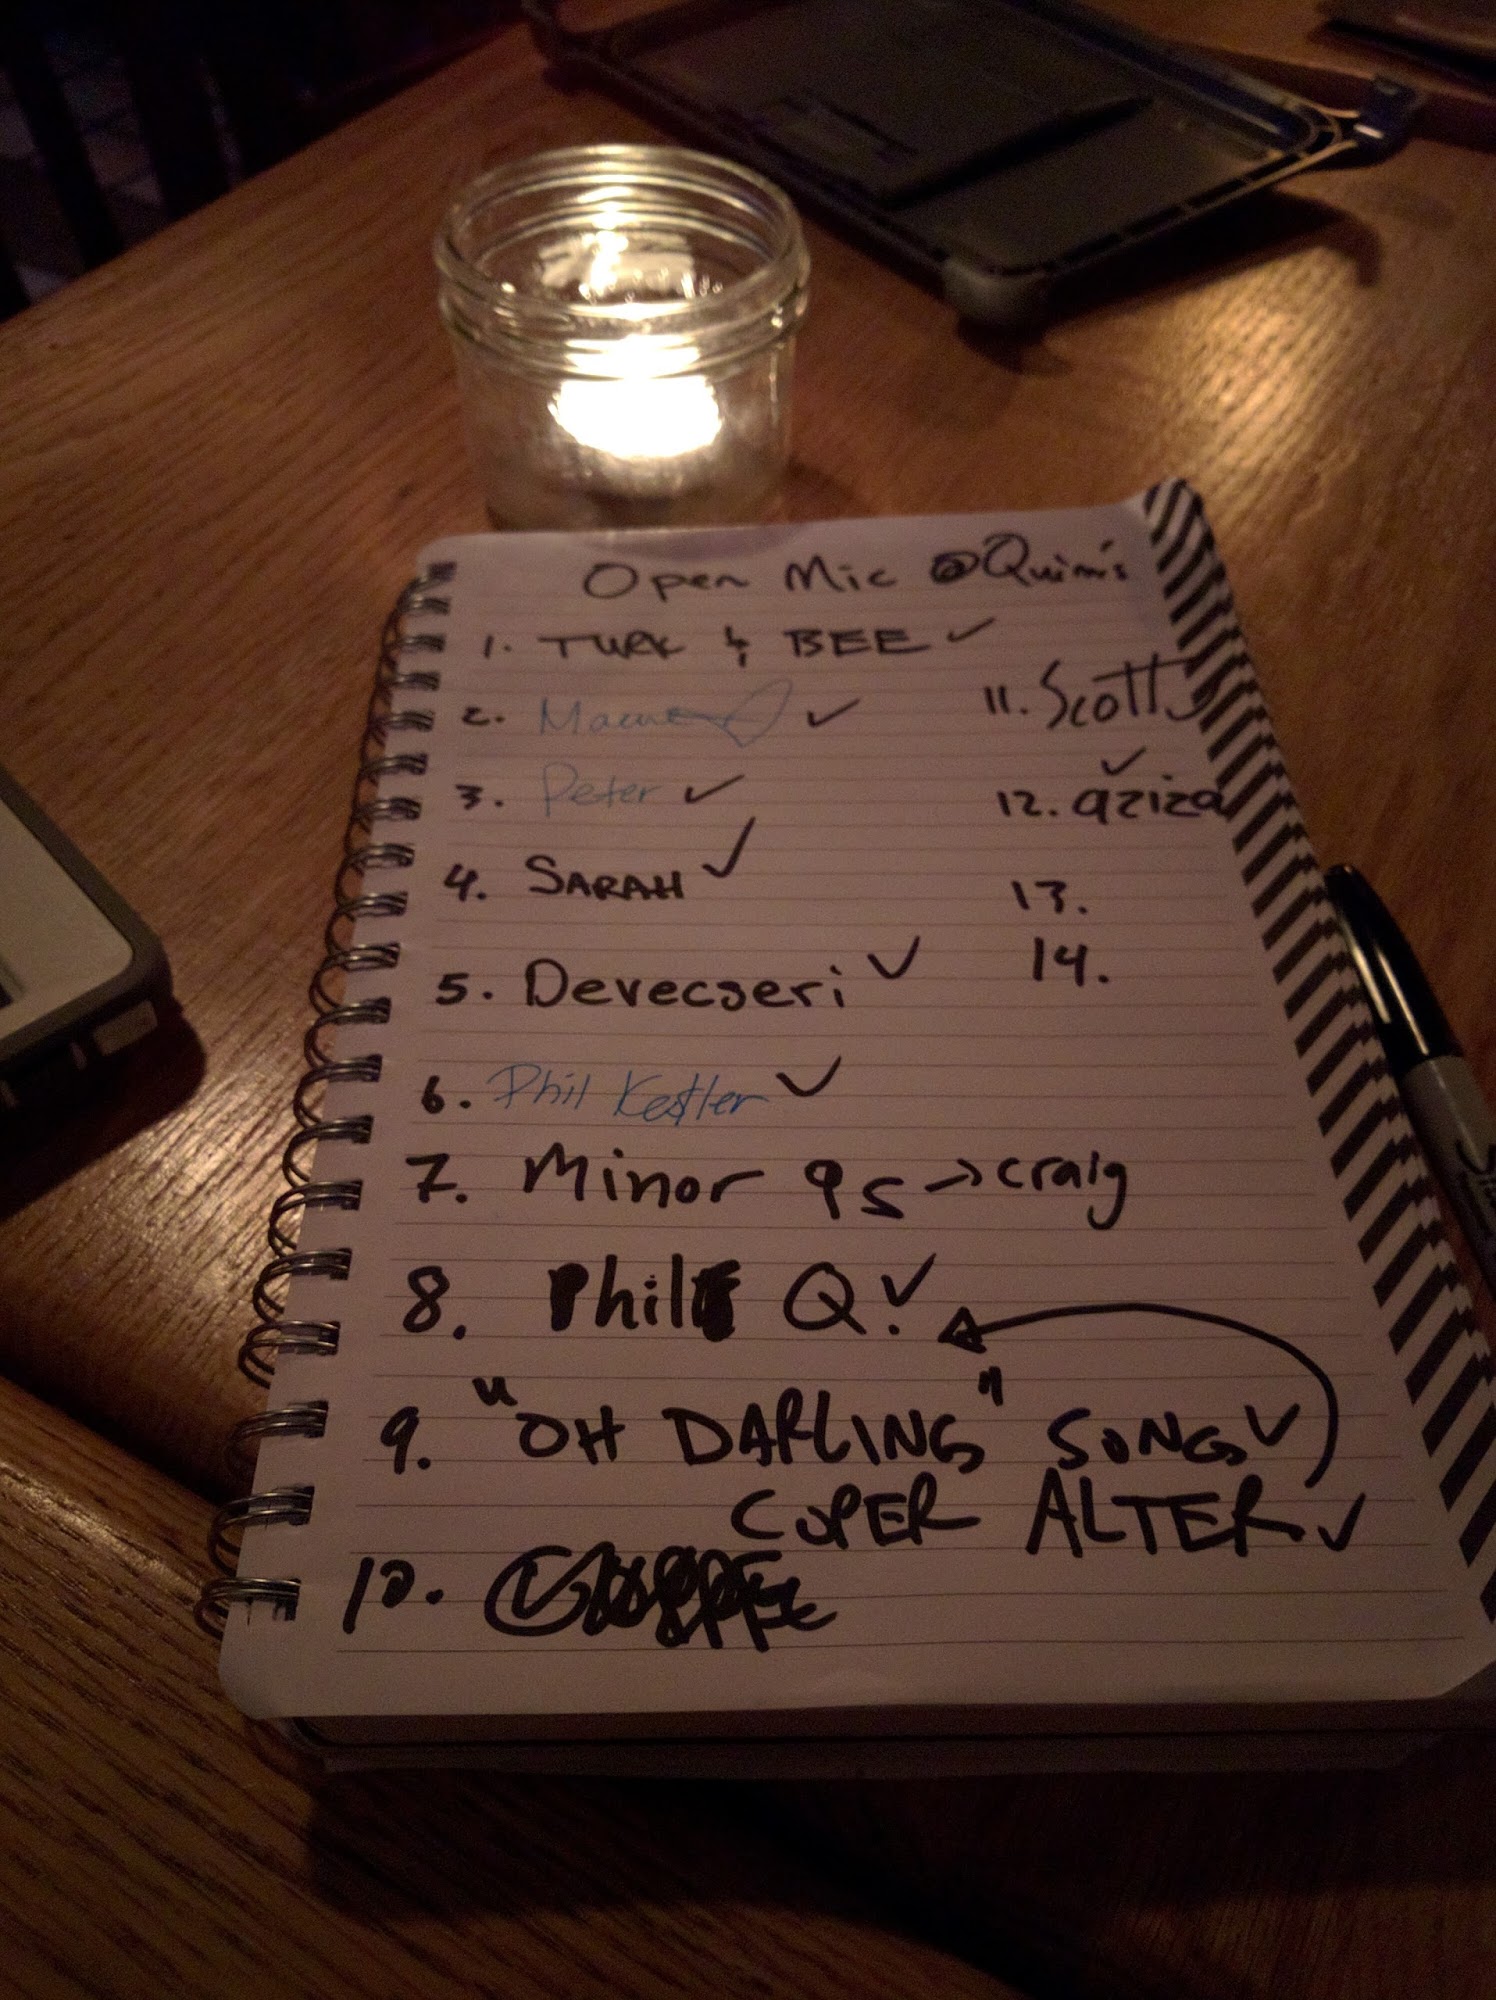 Open Mic @Quinn's
1. TURK & BEE ✓
2. ✓
3. Peter ✓
4. SARAH ✓
5. Devecseri ✓
6. Phil Kestler ✓
7. Minor 9s → craig
8. Phil Q. ✓
9. "OH DARLING" SONG ✓
CUPER ALTER ✓
10.
11. Scott
✓
12. aziza
13.
14.